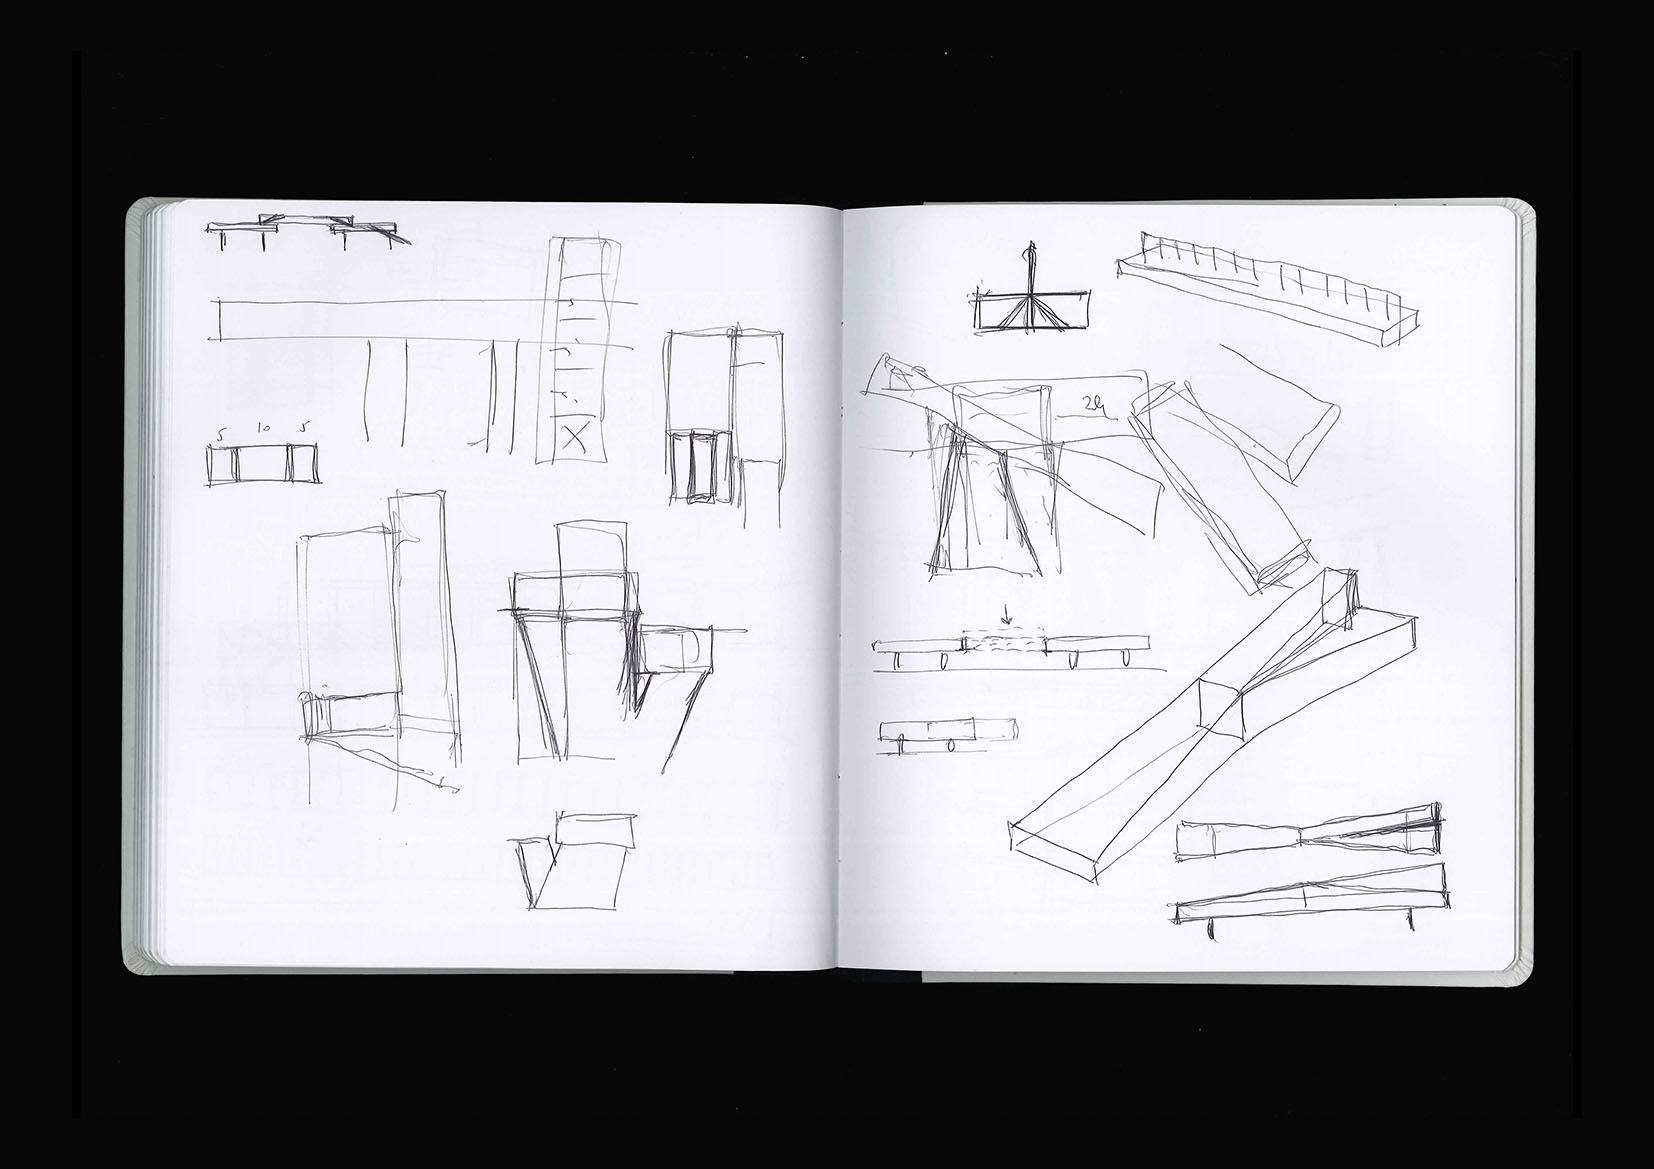 5 10 5
24